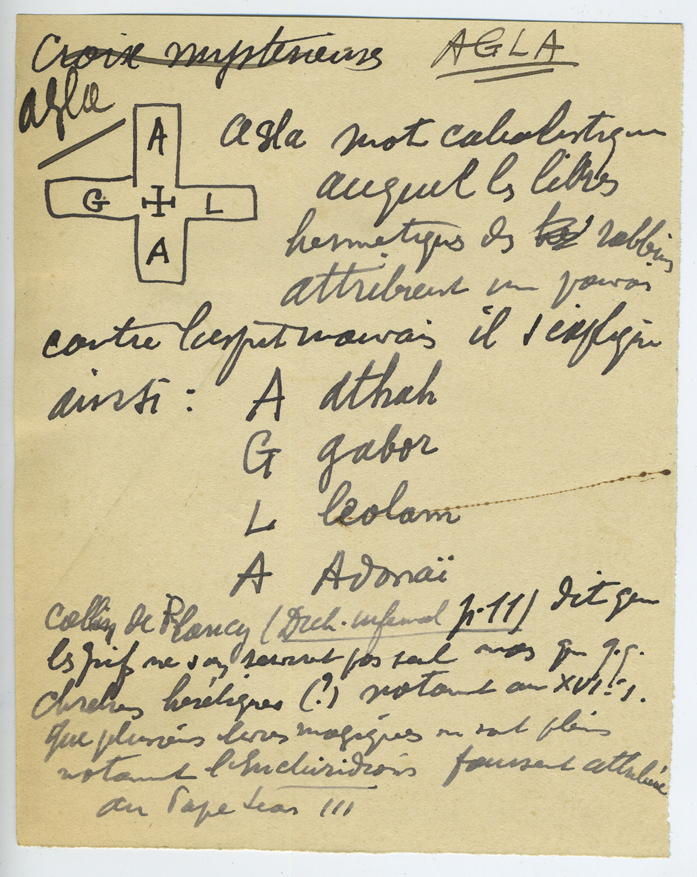 Croix mysterieuse AGLA
agla
A
G L
A
Agla mot cabalistique
auquel les livres
hermetiques des rabbins
attribuent un pouvoir
contre l'esprit mauvais il s'explique
ainsi : A dthah
G gabor
L leolam
A Adonaï
Collin de Plancy (Dich. infernal p. 11) dit que
les juifs ne s'en servent pas seul mais que q.q.
chretiens hérétiques (?) notamt au XVI: s.
que plusieurs livres magiques en sont pleins
notamt l'Enchiridion faussent attribué
au Pape Leon III